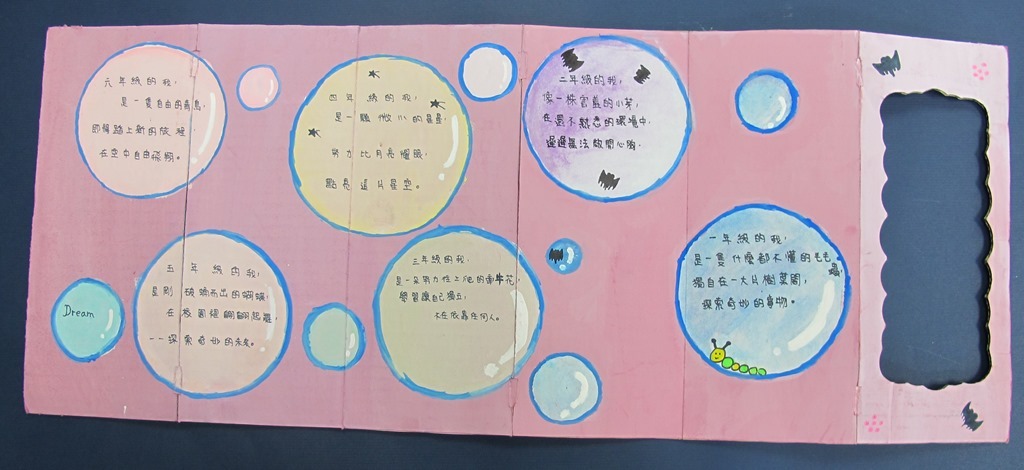 六年級的我,
是一隻自由的青鳥,
即將踏上新的旅程
在空中自由飛翔。
四年級的我,
是一顆微小的星星,
努力比月亮耀眼,
點亮這片星空。
二年級的我,
像一株害羞的小草,
在還不熟悉的環境中,
遲遲無法敞開心胸,
五年級的我,
是剛破蛹而出的蝴蝶,
在校園裡翩翩起舞,
一一探索奇妙的未來。
三年級的我,
是一朵努力往上爬的牽牛花,
學習讓自己獨立,
不在依靠任何人。
一年級的我,
是一隻什麼都不懂的毛毛蟲,
獨自在一大片樹葉間,
探索奇妙的事物。
Dream